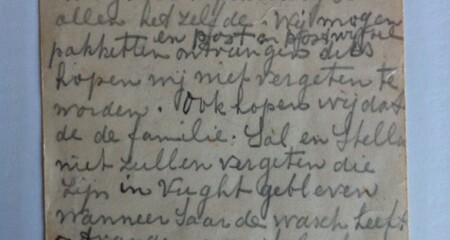 allen het zelfde. Wij mogen
en post en postwissel
pakketten ontvangen dus
hopen wij niet vergeten te
worden. Ook hopen wij dat
de de familie. Sal en Stella
niet zullen vergeten die
zijn in Vught gebleven
wanneer Saar de wasch heeft